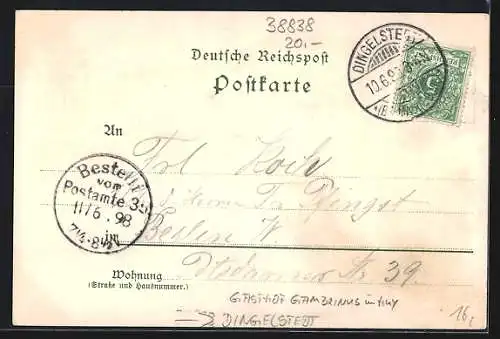 38838
20.-
Deutsche Reichspost
Postkarte
DINGELSTEDT
10.6.9
An
Frl Koch
Bestellt
vom
Postamte 35
11/6.98
7¼-8½N
im
Herrn Dr Pfingst
Berlin W.
Wohnung
(Straße und Hausnummer.)
Potsdamer Str 39.
GASTHOF GAMBRINUS
DINGELSTEDT
16,